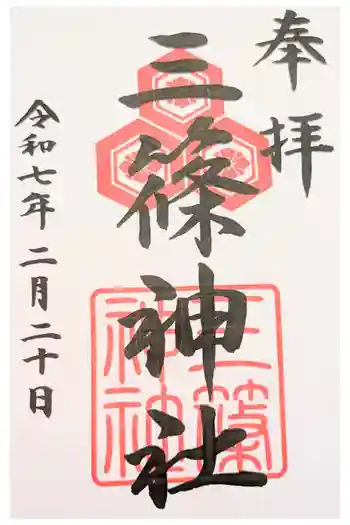 奉拝
三篠神社
三篠神社
令和七年二月二十日